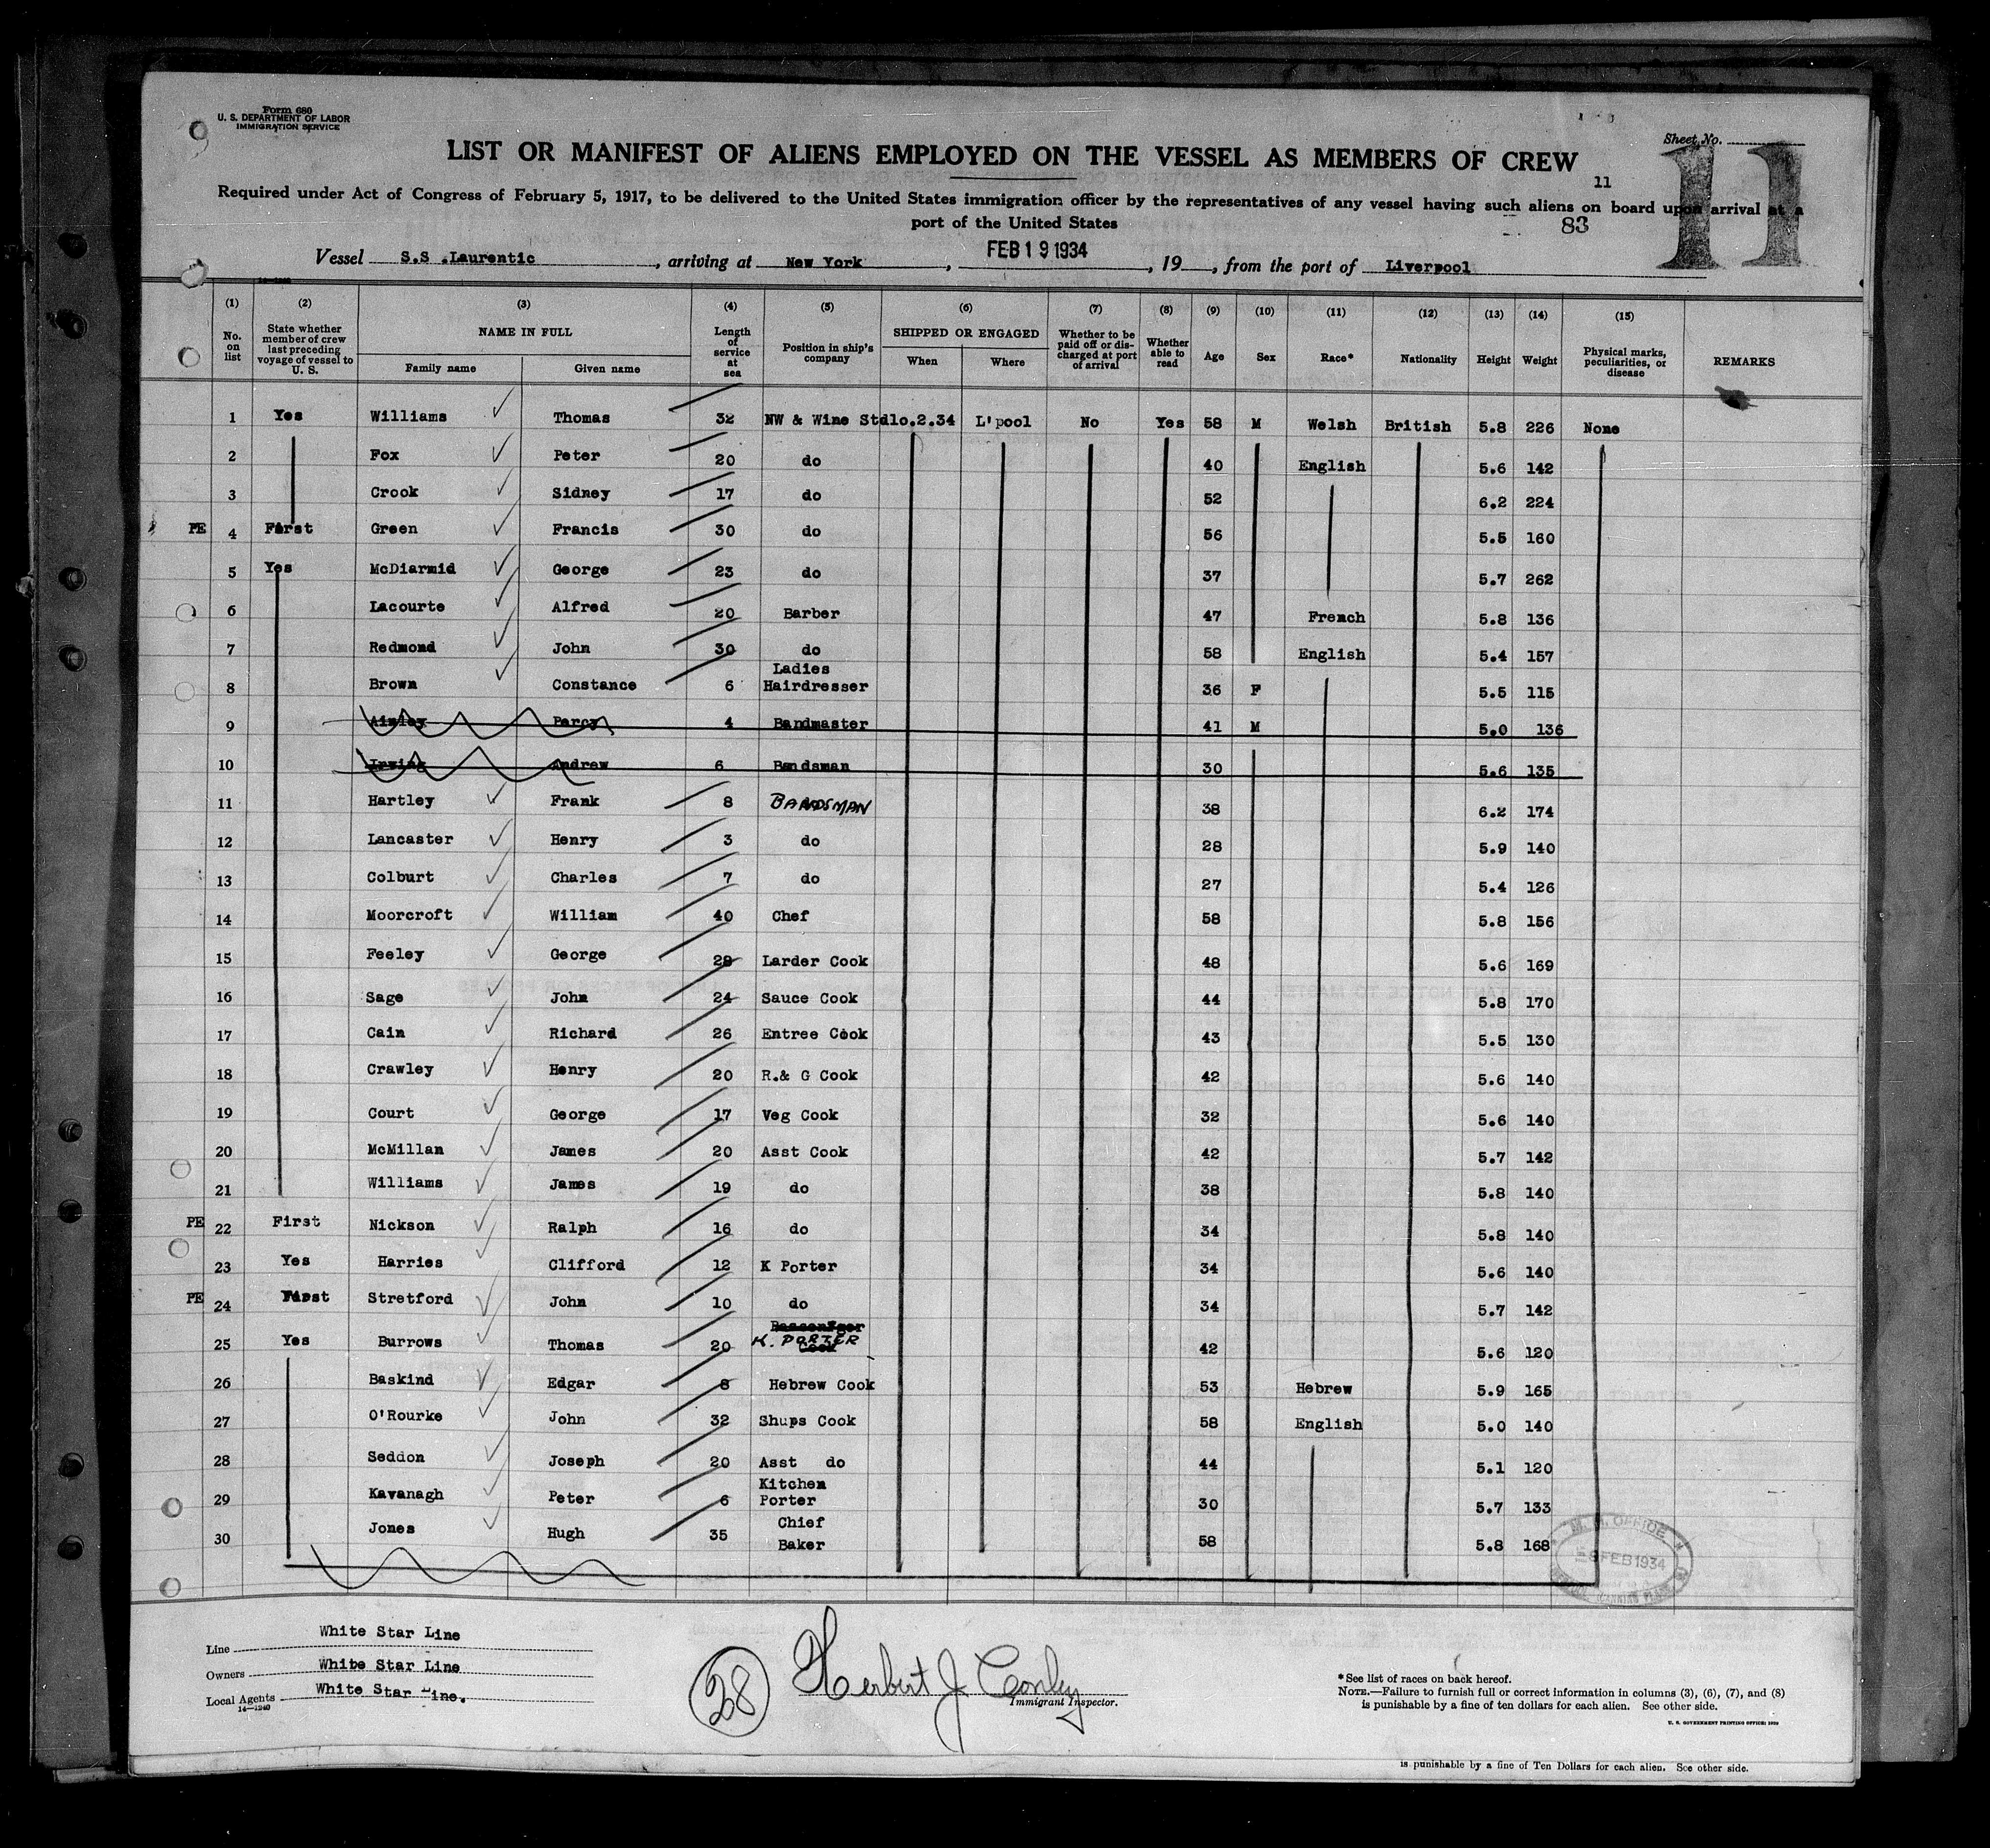 Form 680
U. S. DEPARTMENT OF LABOR
IMMIGRATION SERVICE
Sheet No.
11
LIST OR MANIFEST OF ALIENS EMPLOYED ON THE VESSEL AS MEMBERS OF CREW
11
Required under Act of Congress of February 5, 1917, to be delivered to the United States immigration officer by the representatives of any vessel having such aliens on board upon arrival at a
port of the United States
83
Vessel S.S .Laurentic, arriving at New York, FEB 19 1934, 19, from the port of Liverpool
(1) (2) (3) (4) (5) (6) (7) (8) (9) (10) (11) (12) (13) (14) (15)
No. on list State whether member of crew last preceding voyage of vessel to U. S. NAME IN FULL Family name Given name Length of service at sea Position in ship's company SHIPPED OR ENGAGED When Where Whether to be paid off or discharged at port of arrival Whether able to read Age Sex Race* Nationality Height Weight Physical marks, peculiarities, or disease REMARKS
1 Yes Williams Thomas 32 NW & Wine Std 10.2.34 L'pool No Yes 58 M Welsh British 5.8 226 None
2 Fox Peter 20 do 40 English 5.6 142
3 Crook Sidney 17 do 52 6.2 224
PE 4 First Green Francis 30 do 56 5.5 160
5 Yes McDiarmid George 23 do 37 5.7 262
6 Lacourte Alfred 20 Barber 47 French 5.8 136
7 Redmond John 30 do 58 English 5.4 157
8 Brown Constance 6 Ladies Hairdresser 36 F 5.5 115
9 Percy 4 Bandmaster 41 M 5.0 136
10 Irwing Andrew 6 Bandsman 30 5.6 135
11 Hartley Frank 8 BANDSMAN 38 6.2 174
12 Lancaster Henry 3 do 28 5.9 140
13 Colburt Charles 7 do 27 5.4 126
14 Moorcroft William 40 Chef 58 5.8 156
15 Feeley George 28 Larder Cook 48 5.6 169
16 Sage John 24 Sauce Cook 44 5.8 170
17 Cain Richard 26 Entree Cook 43 5.5 130
18 Crawley Henry 20 R.& G Cook 42 5.6 140
19 Court George 17 Veg Cook 32 5.6 140
20 McMillan James 20 Asst Cook 42 5.7 142
21 Williams James 19 do 38 5.8 140
PE 22 First Nickson Ralph 16 do 34 5.8 140
23 Yes Harries Clifford 12 K Porter 34 5.6 140
PE 24 First Stretford John 10 do 34 5.7 142
25 Yes Burrows Thomas 20 K. PORTER Cook 42 5.6 120
26 Baskind Edgar 8 Hebrew Cook 53 Hebrew 5.9 165
27 O'Rourke John 32 Shups Cook 58 English 5.0 140
28 Seddon Joseph 20 Asst do 44 5.1 120
29 Kavanagh Peter 6 Kitchen Porter 30 5.7 133
30 Jones Hugh 35 Chief Baker 58 5.8 168
M. OFFICE
FEB 1934
Line White Star Line
Owners White Star Line
Local Agents White Star Line.
14—1240
28
Herbert J Conley
Immigrant Inspector.
*See list of races on back hereof.
NOTE.—Failure to furnish full or correct information in columns (3), (6), (7), and (8)
is punishable by a fine of ten dollars for each alien. See other side.
U. S. GOVERNMENT PRINTING OFFICE:
is punishable by a fine of Ten Dollars for each alien. See other side.